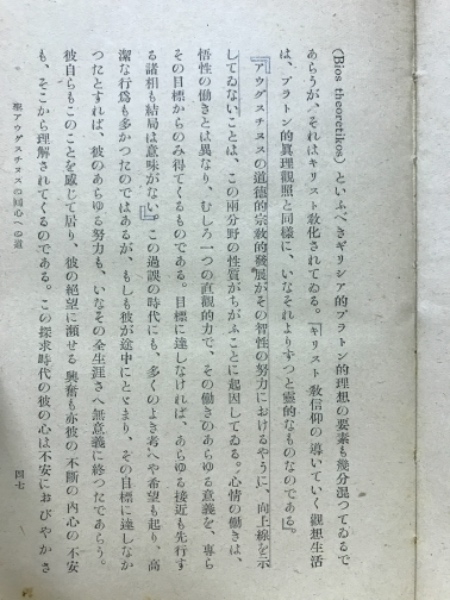 (Bios theoretikos) といふべきギリシア的プラトン的理想の要素も幾分混つてゐるで
あらうが、それはキリスト教化されてゐる。「キリスト教信仰の導いていく觀想生活
は、プラトン的眞理觀照と同樣に、いなそれよりずつと靈的なものなのである」。
『アウグスチヌスの道德的宗教的發展がその智性の努力におけるやうに、向上線を示
してゐないことは、この兩分野の性質がちがふことに起因してゐる。心情の働きは、
悟性の働きとは異なり、むしろ一つの直觀的力で、その働きのあらゆる意義を、專ら
その目標からのみ得てくるものである。目標に達しなければ、あらゆる接近も先行す
る諸相も結局は意味がない』。この過誤の時代にも、多くのよき考へや希望も起り、高
潔な行爲も多かつたのではあるが、もしも彼が途中にとゞまり、その目標に達しなか
つたとすれば、彼のあらゆる努力も、いなその全生涯さへ無意義に終つたであらう。
彼自らもこのことを感じて居り、彼の絕望に瀕せる興奮も亦彼の不斷の內心の不安
も、そこから理解されてくるのである。この探求時代の彼の心は不安におびやかさ
聖アウグスチヌスの囘心への道
四七